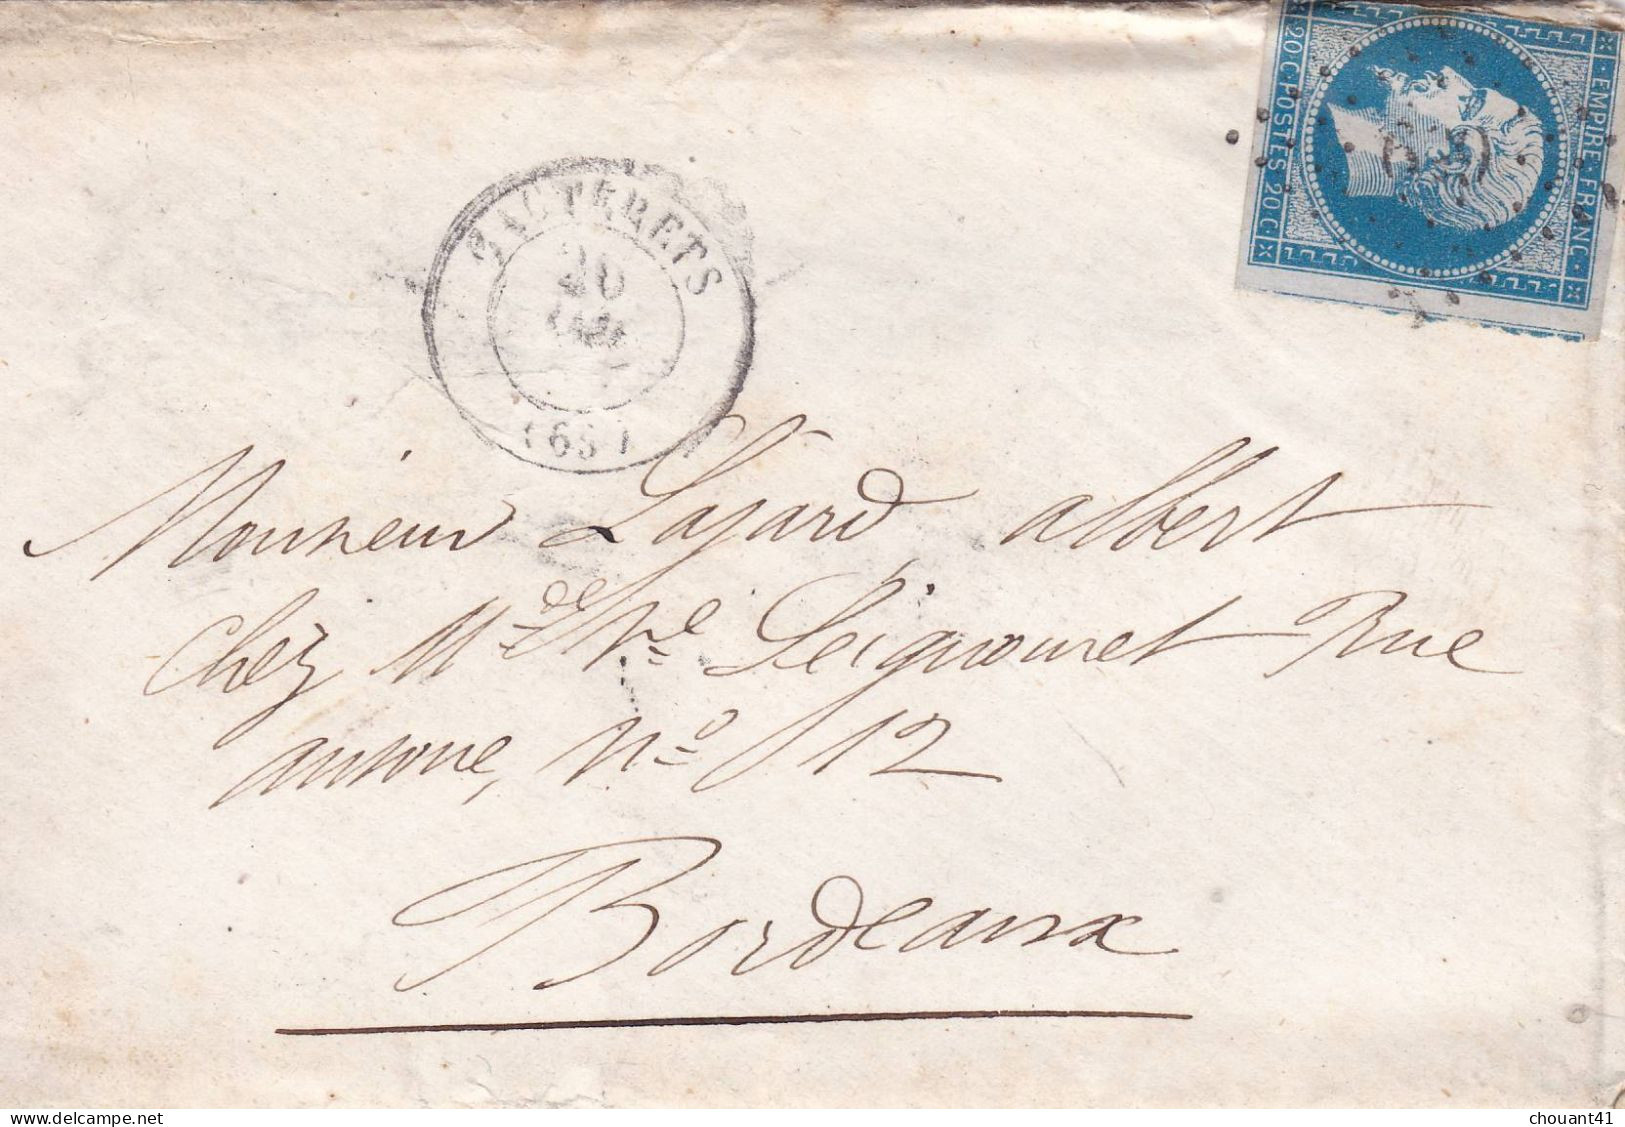 EMPIRE FRANC.
20 C. POSTES 20 C.
CAUTERETS
20
(65)
Monsieur Lajard albert
chez Mde Vve Seignouret Rue
ausone, No 12
Bordeaux
delcampe.net
chouant41